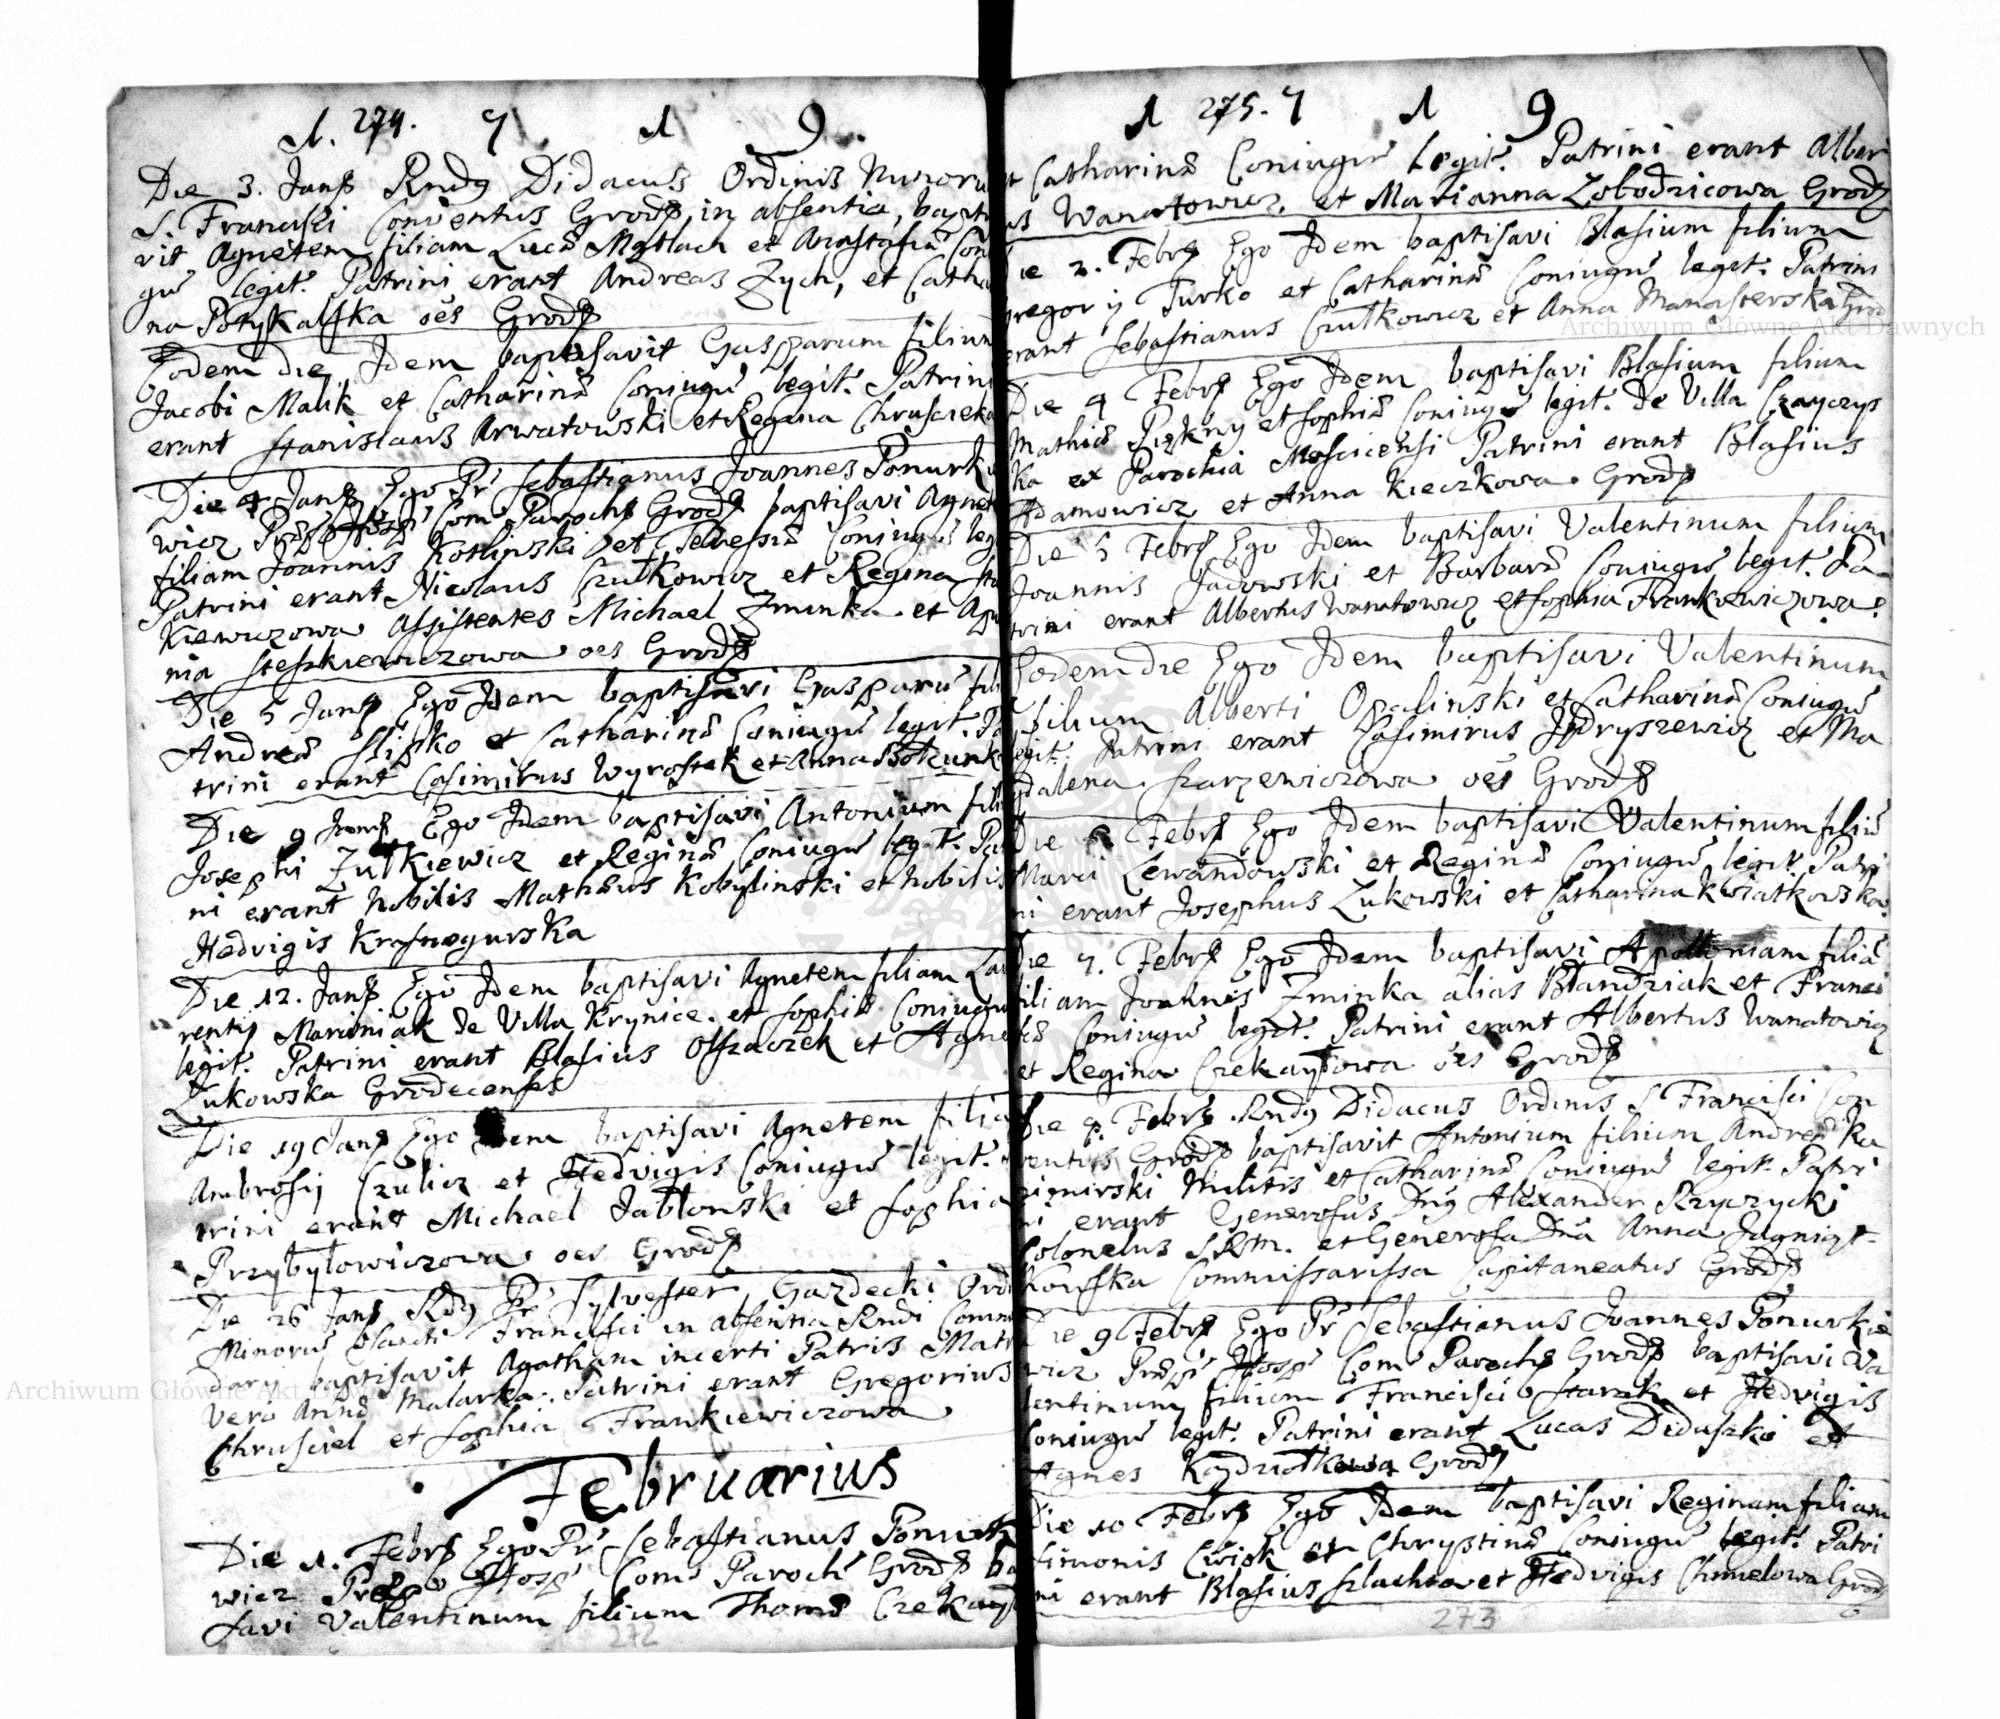 1. 274. 7 1 9.
Die 3. Janʒ Rndg Didacus Ordinis Minoru
S. Francisci Conventus Grodʒ, in absentia, bapti
vit Agnetem filiam Lucæ Matlach et Anastasiæ Con
gū legit. Patrini erant Andreas Zych, et Catha
na Potykalska oēs Grodʒ
Eodem die Idem baptisavit Gasparum filium
Jacobi Malik et Catharinæ Coniugū legit. Patrini
erant Stanislaus Arwatowski et Regina Chruscicka
Die 4 Janʒ Ego Pr Sebastianus Joannes Ponurke
wicz Præpꝰ Hospꝰ Com Parochʒ Grodʒ baptisavi Agnet
filiam Joannis Kotlinski et Coniugū leg
Patrini erant Nicolaus Czułkowicz et Regina
kiewiczowa assistentes Michael Zminka et
nia Steszkiewiczowa oes Grodʒ
Die 5 Janʒ Ego Idem baptisavi Gasparū fili
Andreæ Slipko et Catharinæ Coniugū legit. Pa
trini erant Casimirus Wyrostek et Anna
Die 9 Janʒ Ego Idem baptisavi Antonium fili
Josephi Zułkiewicz et Reginæ Coniugū legit. Pat
ni erant Nobilis Mathæus Kobylinski et Nobilis
Hedvigis Krasnogurska
Die 12. Janʒ Ego Idem baptisavi Agnetem filiam Lau
rentij Mariniak de Villa Krynice. et Sophiæ Coniugū
legit. Patrini erant Blasius Offzaczek et Agnes
Zukowska Grodecenses
Die 19 Janʒ Ego Idem baptisavi Agnetem filia
Ambrosij Czulicz et Hedvigis Coniugū legit.
trini erant Michael Jabłonski et Sophia
Przybyłowiczowa oes Grodʒ
Die 26 Janʒ Rdg Pr Sylvester Gazdecki Ordi
Minorū Sancti Francisci in absentia Rndi Comm
darij baptisavit Agatham incerti Patris Matr
vero Annæ Malarka. Patrini erant Gregorius
Chrusciel et Sophia Frankiewiczowa
Februarius
Die 1. Febrʒ Ego Pr Sebastianus Ponurk
wicz Præpꝰ Hospꝰ Com Paroch Grodʒ ba
savi Valentinum filium Thomæ Czekay
272
1 275. 7 1 9
et Catharinæ Coniugū Legit. Patrini erant Alber
us Wanatowicz. et Marianna Zobodzicowa Grodʒ
Die 2. Febrʒ Ego Idem baptisavi Blasium filium
Gregorij Turko et Catharinæ Coniugū legit. Patrini
erant Sebastianus Czułkowicz et Anna Manasterska Grod
Die 4 Febrʒ Ego Idem baptisavi Blasium filium
Mathiæ Piękny et Sophiæ Coniugū legit. de Villa Czayczys
ka ex Parochia Moscicensi Patrini erant Blasius
Adamowicz et Anna Kieczkowa Grodʒ
Die 5 Febrʒ Ego Idem baptisavi Valentinum filium
Joannis Sadowski et Barbaræ Coniugū legit. Pa
trini erant Albertus Wanatowicz et Sophia Frankiewiczowa
Eodem die Ego Idem baptisavi Valentinum
filium Alberti Opalinski et Catharinæ Coniugū
legit. Patrini erant Casimirus Jędryszewicz et Ma
gdalena Szarzewiczowa oēs Grodʒ
Die Febrʒ Ego Idem baptisavi Valentinum filiū
Marci Lewandowski et Reginæ Coniugū legit. Patri
ni erant Josephus Zukowski et Catharina Kwiatkowska
Die 7. Febrʒ Ego Idem baptisavi Apolloniam filiā
filiam Joannis Zminka alias Błandziak et Franci
scæ Coniugū legit. Patrini erant Albertus Wanatowicz
et Regina Czekaytowa oes Grodʒ
Die 9. Febrʒ Rndg Didacus Ordinis S Francisci Con
ventus Grodʒ baptisavit Antonium filium Andreæ Ka
zimirski Militis et Catharinæ Coniugū legit. Patri
ni erant Generosus Dng Alexander Rzyczycki
Colonelus S.R.M. et Generosa Dna Anna Jagnięt-
kowska Commissarissa Capitaneatus Grodʒ
Die 9 Febrʒ Ego Pr Sebastianus Joannes Ponurkie
wicz Præpꝰ Hospꝰ Com Parochʒ Grodʒ baptisavi Va
lentinum filium Francisci Starzk et Hedvigis
Coniugū legit. Patrini erant Lucas Diduszko et
Agnes Grodʒ
Die 10 Febrʒ Ego Idem baptisavi Reginam filiam
Simonis Cwiok et Chrystinæ Coniugū legit. Patri
ni erant Blasius Szlachta et Hedvigis Chmielowa Grodʒ
273
Archiwum Główne Akt Dawnych
Archiwum Główne Akt Dawnych